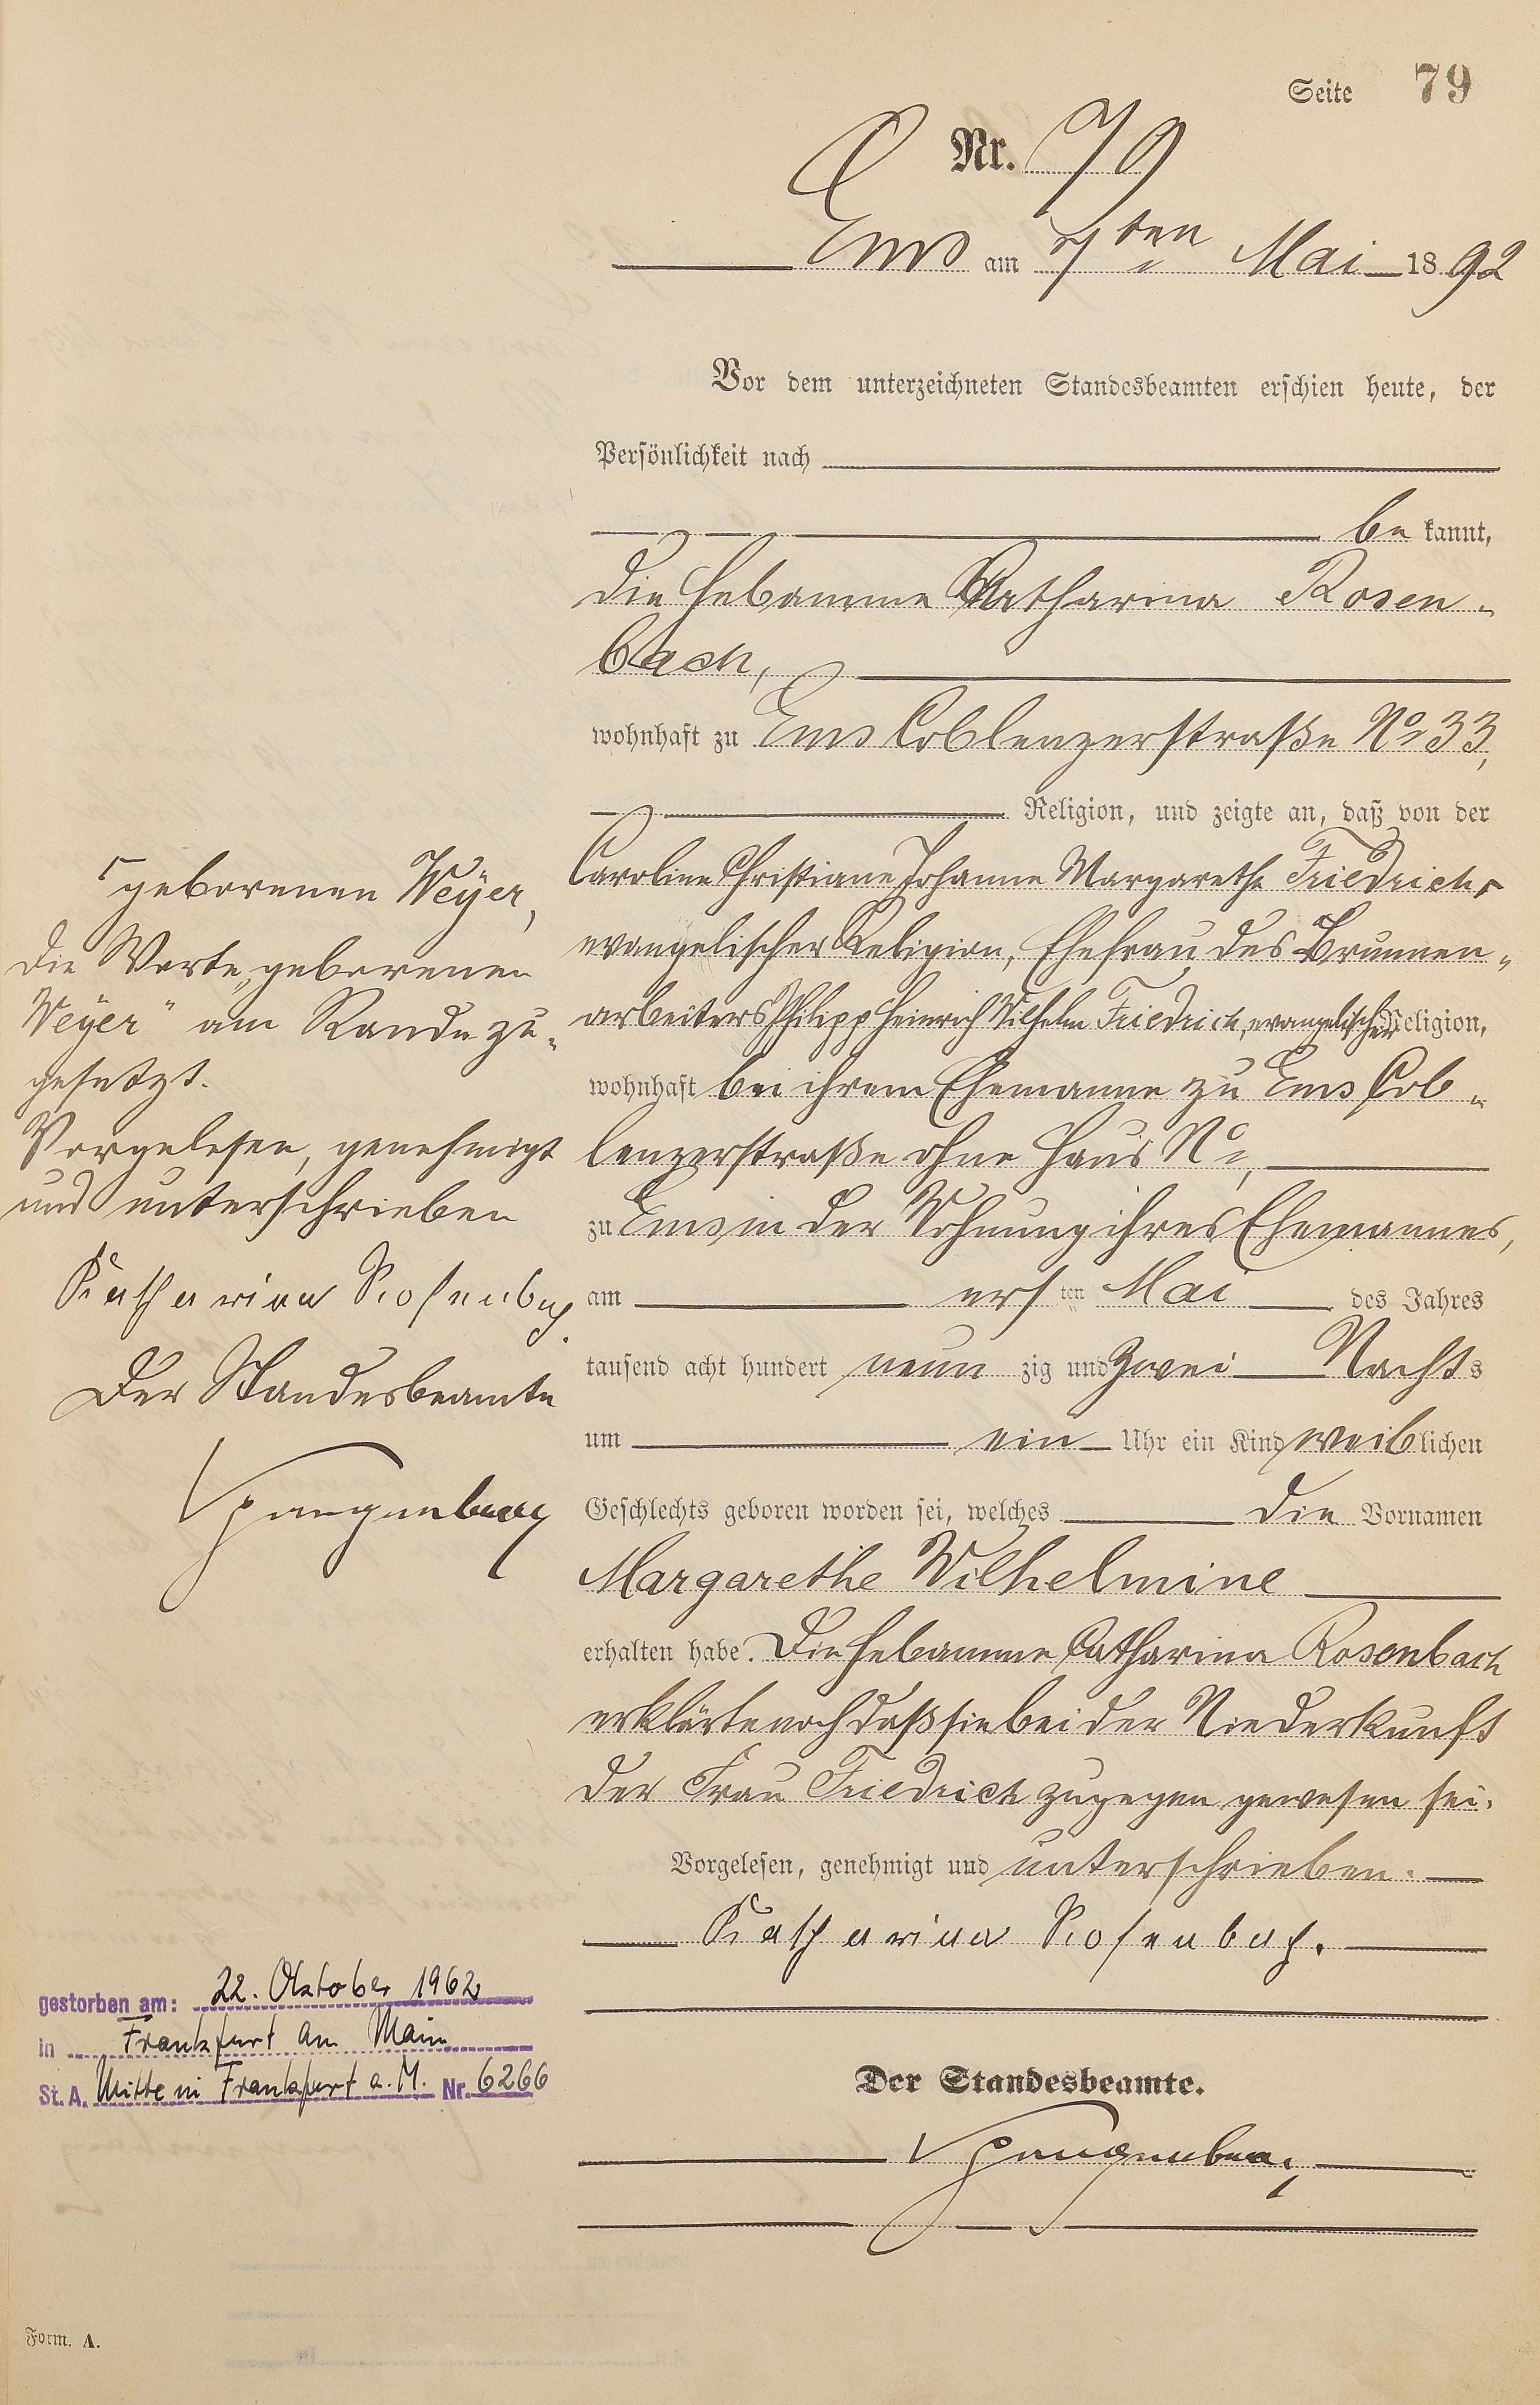 Seite 79
Nr. 79
Ems am 7ten Mai 1892
Vor dem unterzeichneten Standesbeamten erschien heute, der
Persönlichkeit nach
be kannt,
die Hebamme Catharina Rosen-
bach,
wohnhaft zu Ems Coblenzerstraße No 33,
Religion, und zeigte an, daß von der
Caroline Christiane Johanne Margarethe Friedrich, ⌈
evangelischer Religion, Ehefrau des Brunnen-
arbeiters Philipp Heinrich Wilhelm Friedrich, evangelischer Religion,
wohnhaft bei ihrem Ehemanne zu Ems Cob-
lenzerstraße ohne Haus No,
zu Ems in der Wohnung ihres Ehemannes,
am ersten Mai des Jahres
tausend acht hundert neun zig und zwei Nachts
um ein Uhr ein Kind weiblichen
Geschlechts geboren worden sei, welches die Vornamen
Margarethe Wilhelmine
erhalten habe. Die Hebamme Catharina Rosenbach
erklärte noch daß sie bei der Niederkunft
der Frau Friedrich zugegen gewesen sei.
Vorgelesen, genehmigt und unterschrieben.
Katharina Rosenbach.
Der Standesbeamte.
Spangenberg
⌈ geborenen Weÿer,
Die Worte „geborenen
Weÿer" am Rande zu-
gesetzt.
Vorgelesen, genehmigt
und unterschrieben
Katharina Rosenbach.
Der Standesbeamte
Spangenberg
gestorben am: 22. Oktober 1962
in Frankfurt am Main
St. A. Mitte in Frankfurt a. M. Nr. 6266
Form. A.